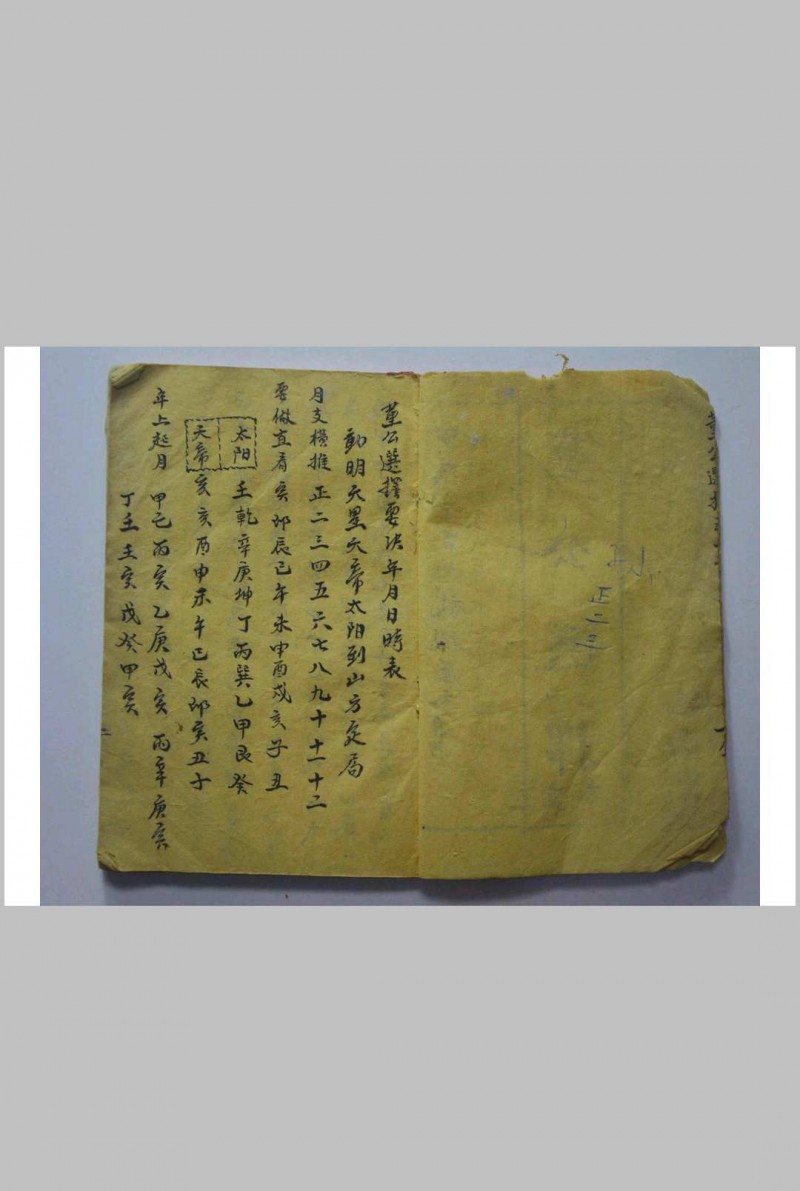 董公選擇
正二三
董公選擇要决年月日時表
動明天星天帝太阳到山方定局
月支橫推 正二三四五六七八九十十一十二
要做直看 寅卯辰巳午未申酉戌亥子丑
太阳 壬乾辛庚坤丁丙巽乙甲艮癸
天帝 亥亥酉申未午巳辰卯亥丑子
年上起月 甲己丙寅 乙庚戊寅 丙辛庚寅
丁壬壬寅 戊癸甲寅
二